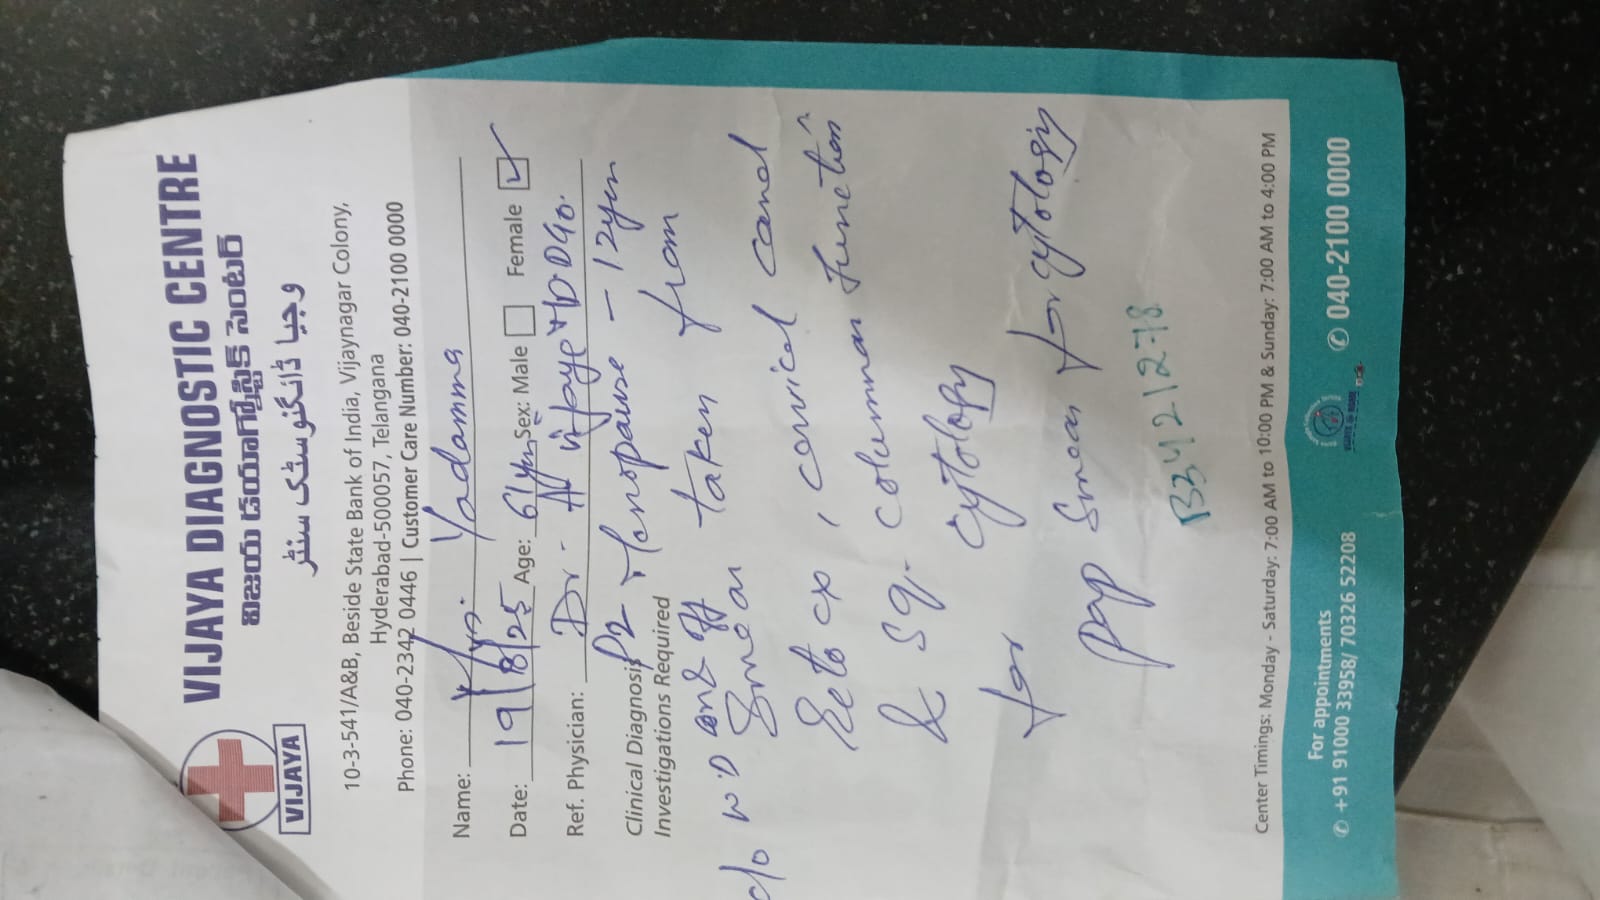 VIJAYA DIAGNOSTIC CENTRE
విజయ డయాగ్నోస్టిక్ సెంటర్
وجیا ڈائگنوسٹک سنٹر
VIJAYA
10-3-541/A&B, Beside State Bank of India, Vijaynagar Colony,
Hyderabad-500057, Telangana
Phone: 040-2342 0446 | Customer Care Number: 040-2100 0000
Name: Yadamma
Date: 19/8/25 Age: 61yrs Sex: Male Female
Ref. Physician: Dr. A Vijaya DGO.
Clinical Diagnosis P2 Menopause - 12yrs
Investigations Required
c/o W.D
Smear taken from
Ecto cx, cervical canal
& sq. columnar Junction
for cytology
pap smear for cytology
B3421278
Center Timings: Monday - Saturday: 7:00 AM to 10:00 PM & Sunday: 7:00 AM to 4:00 PM
For appointments
+91 91000 33958/ 70326 52208
040-2100 0000